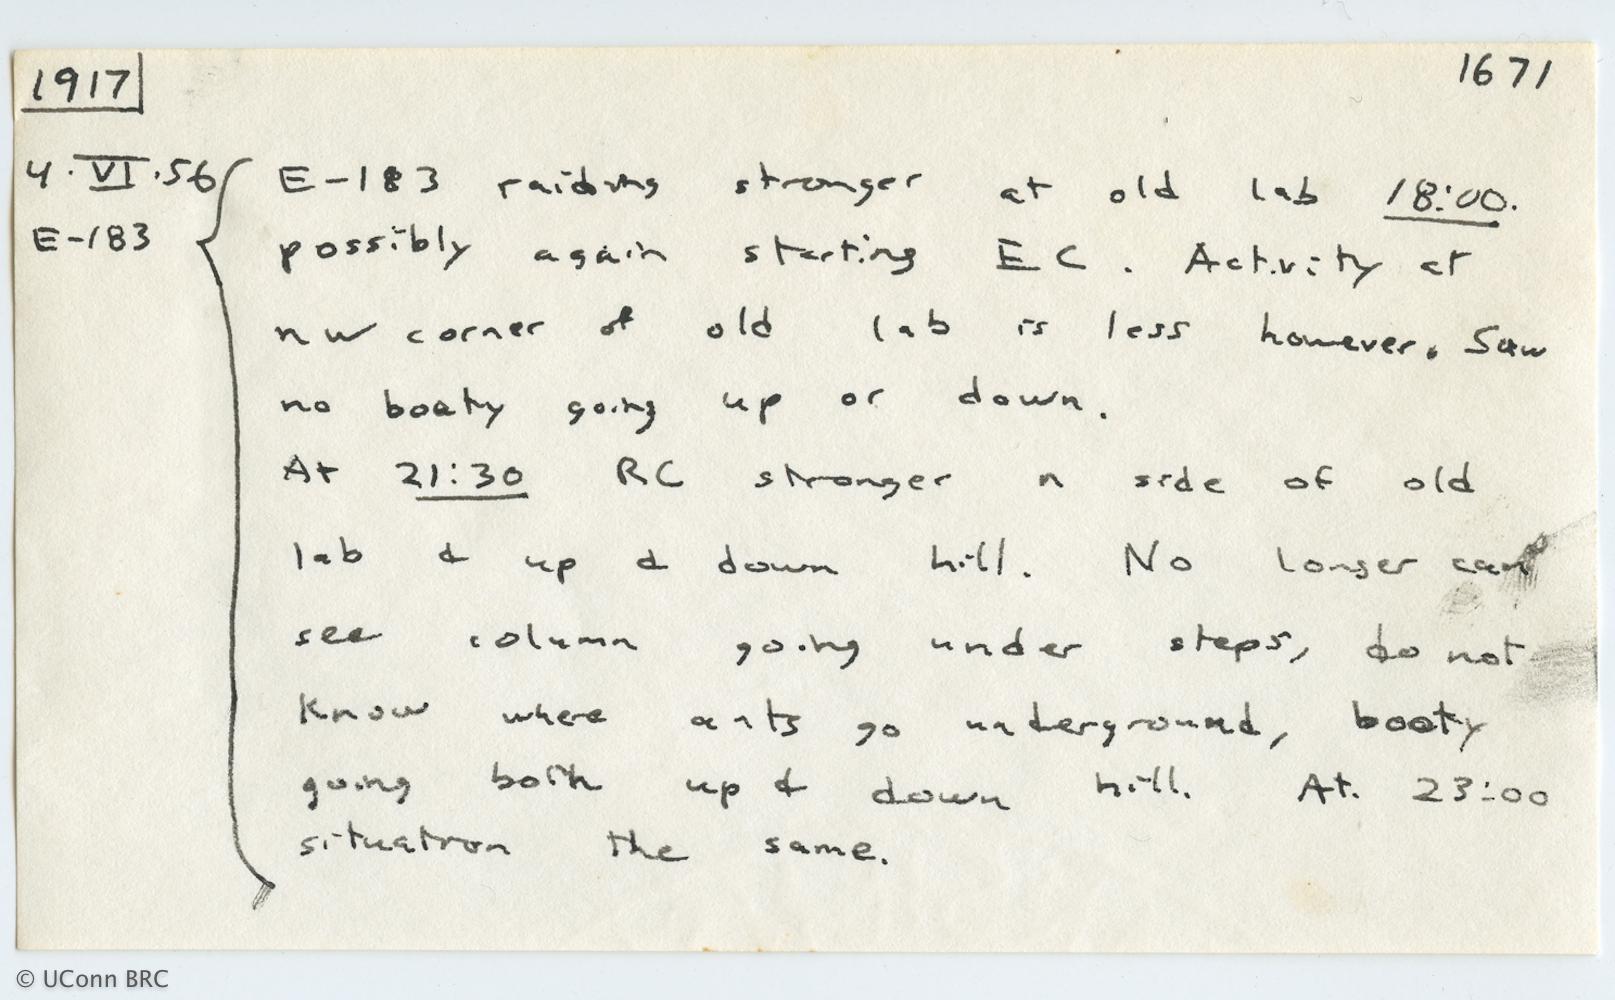 1917
1671
4.VI.56
E-183
E-183 raiding stronger at old lab 18:00.
possibly again starting EC. Activity at
nw corner of old lab is less however. Saw
no booty going up or down.
At 21:30 RC stronger n side of old
lab & up & down hill. No longer can
see column going under steps, do not
know where ants go underground, booty
going both up & down hill. At. 23:00
situation the same.
© UConn BRC